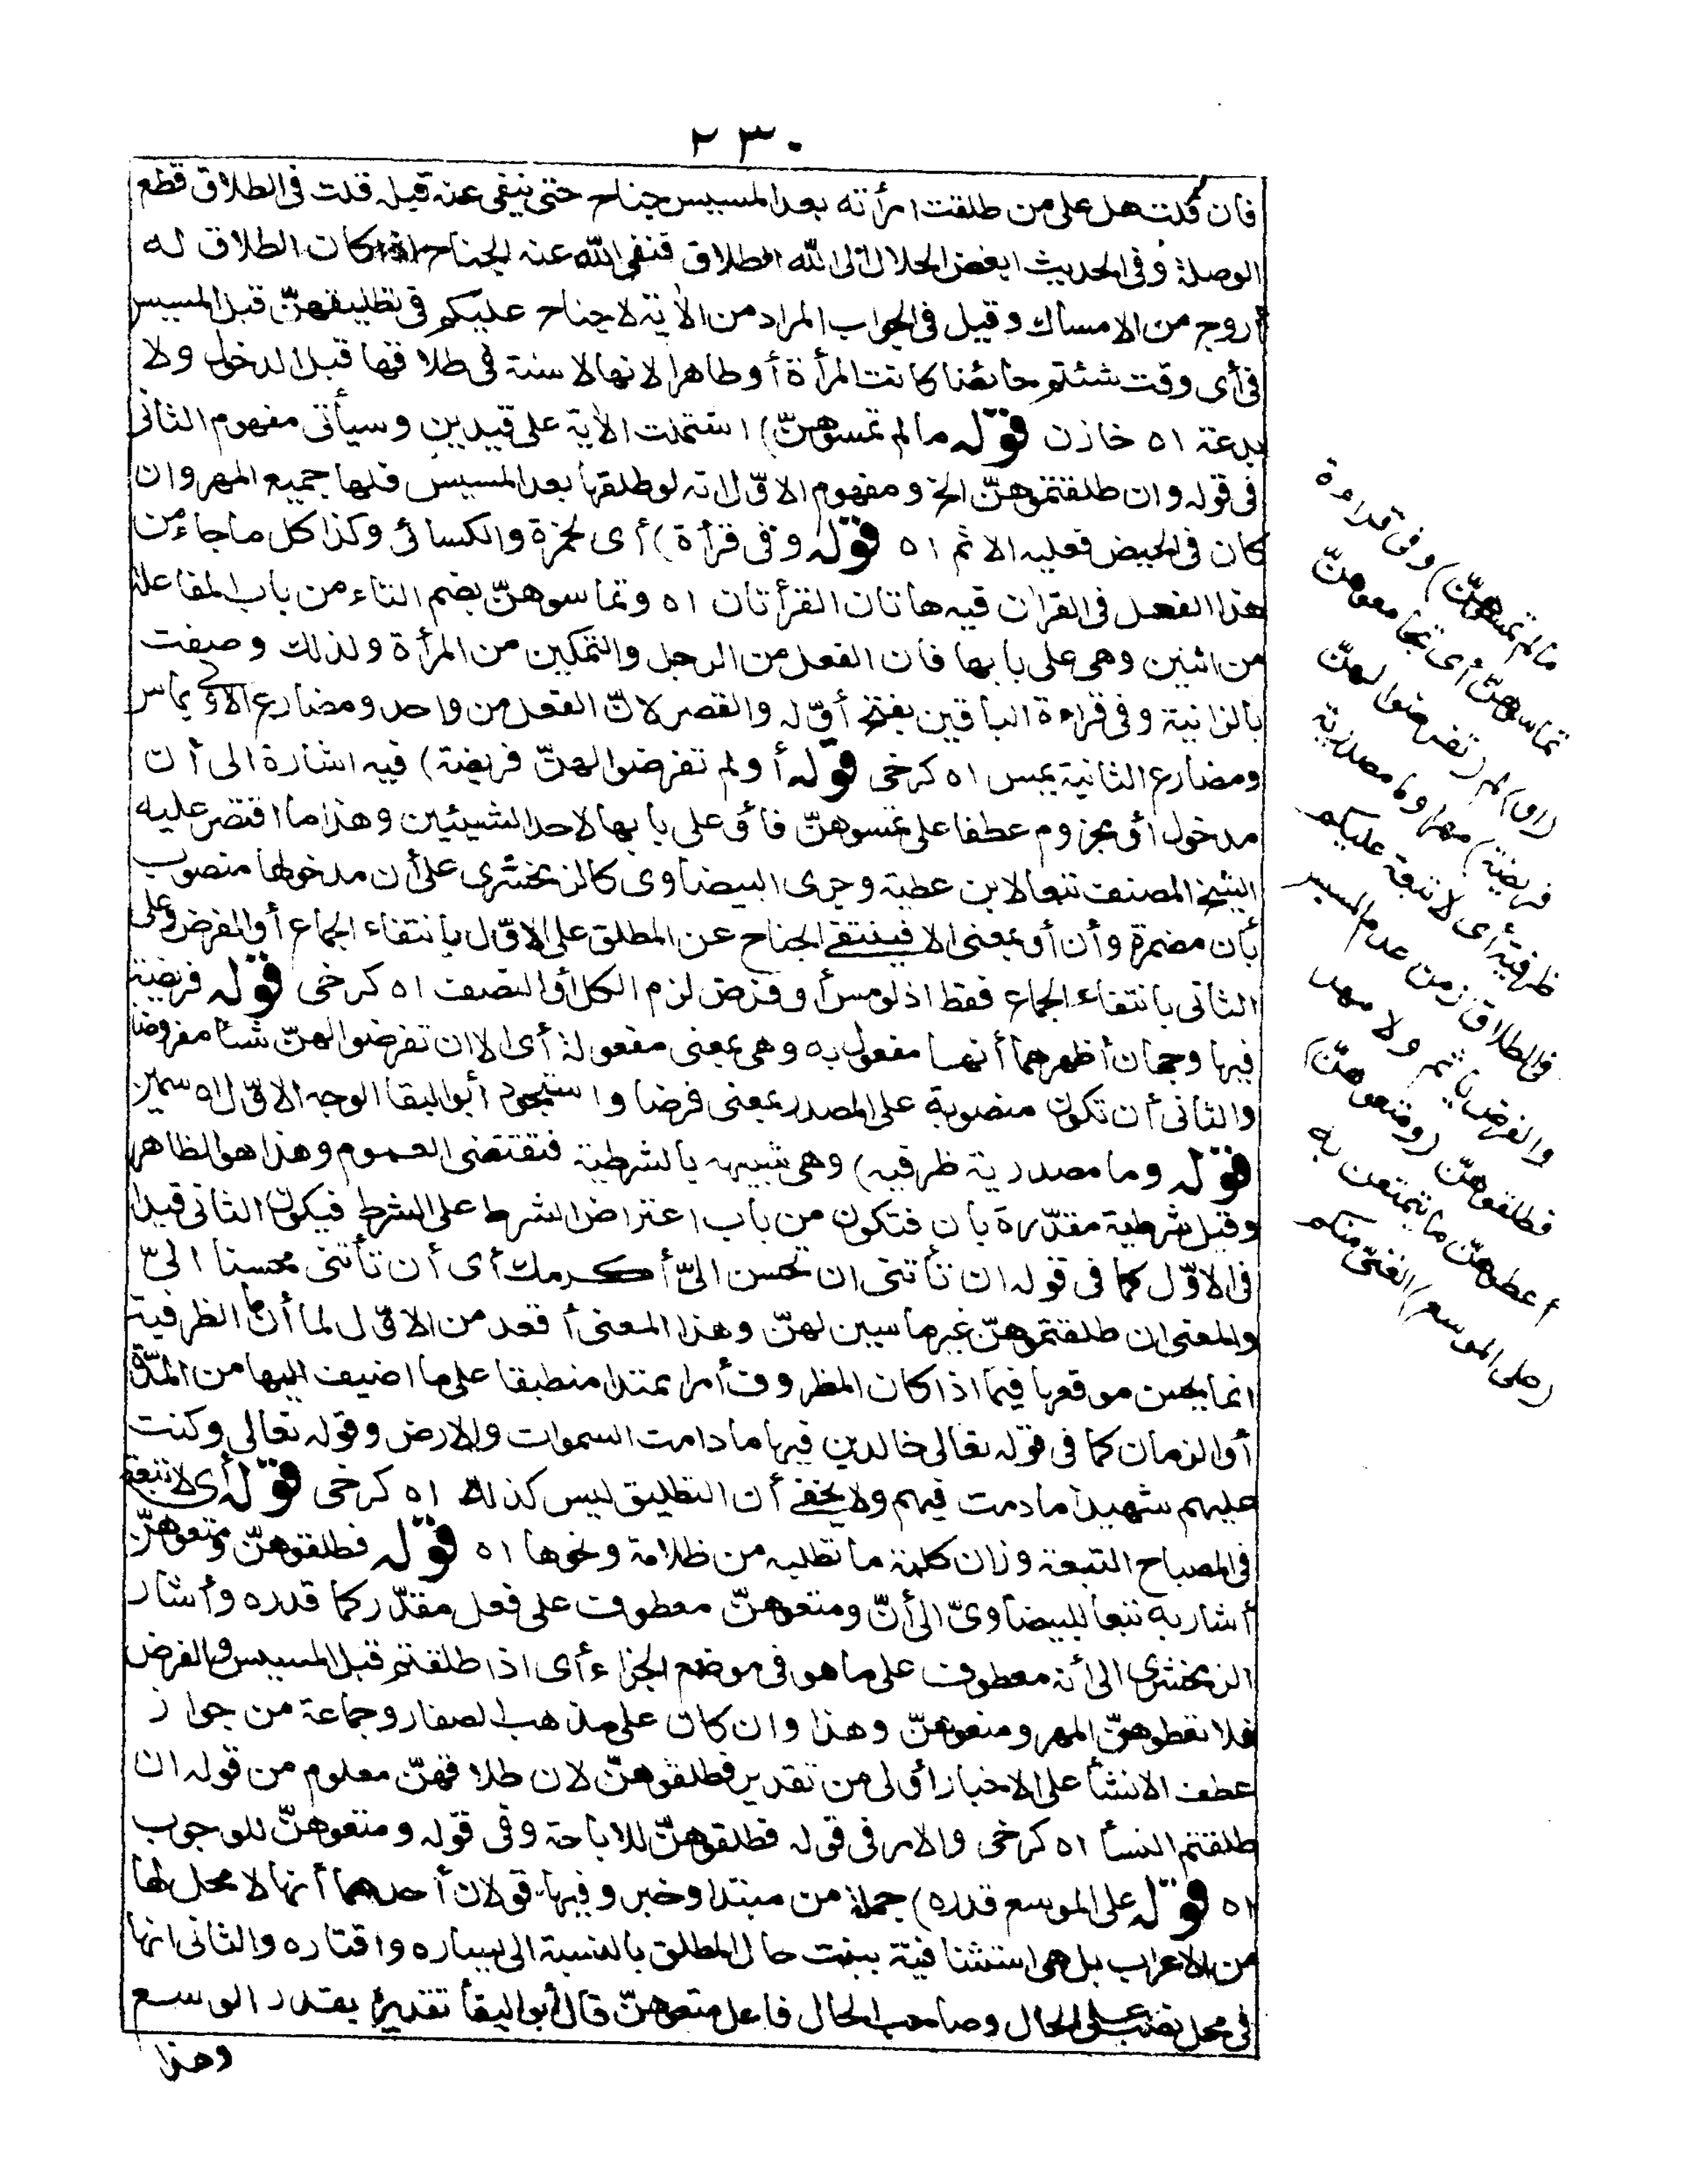 ٢٣٠
فان قلت هل على من طلقت امرأته بعد المسيس جناح حتى ينفى عنه قبله قلت فى الطلاق قطع
الوصلة وفى الحديث ابغض الحلال الى الله الطلاق فنفى الله عنه الجناح اذا كان الطلاق له
أروح من الامساك وقيل فى الجواب المراد من الأية لا جناح عليكم فى تطليقهنّ قبل المسيس
فى أى وقت شئتم حائضا كانت المرأة أو طاهرا لانها لا سنة فى طلاقها قبل الدخول ولا
بدعة اه خازن قوله ما لم تمسوهنّ) اشتملت الأية على قيدين وسيأتى مفهوم الثانى
فى قوله وان طلقتموهنّ الخ ومفهوم الاوّل انه لو طلقها بعد المسيس فلها جميع المهر وان
كان فى الحيض فعليه الاثم اه قوله وفى قرأة) أى لحمزة والكسائى وكذا كل ما جاء من
هذا الفعل فى القران فيه هاتان القرأتان اه وتماسوهنّ بضم التاء من باب المفاعلة
من اثنين وهى على بابها فان الفعل من الرجل والتمكين من المرأة ولذلك وصفت
بالزانية وفى قراءة الباقين بفتح أوّله والقصر لانّ الفعل من واحد ومضارع الاولى يماس
ومضارع الثانية يمس اه كرخى قوله أو لم تفرضوا لهنّ فريضة) فيه اشارة الى أن
مدخول أو مجزوم عطفا على تمسوهنّ فأو على بابها لاحد الشيئين وهذا ما اقتصر عليه
الشيخ المصنف تبعا لابن عطية وجرى البيضاوى كالزمخشرى على أن مدخولها منصوب
بأن مضمرة وأن أو بمعنى الا فينتفى الجناح عن المطلق على الاوّل بانتفاء الجماع أو الفرض وعلى
الثانى بانتفاء الجماع فقط اذ لو مس أو فرض لزم الكل أو النصف اه كرخى قوله فريضة
فيها وجهان أظهرهما أنها مفعول به وهى بمعنى مفعولة أى الا ان تفرضوا لهنّ شيئا مفروضا
والثانى أن تكون منصوبة على المصدر بمعنى فرضا واستجود أبو البقا الوجه الاوّل اه سمين
قوله وما مصدرية ظرفيه) وهى شبيهه بالشرطية فتقتضى العموم وهذا هو الظاهر
وقيل شرطية مقدّرة بان فتكون من باب اعتراض الشرط على الشرط فيكون الثانى قيدا
فى الاوّل كما فى قوله ان تأتنى ان تحسن الىّ أكرمك أى أن تأتنى محسنا الىّ
والمعنى ان طلقتموهنّ غير ماسين لهنّ وهذا المعنى أقعد من الاوّل لما أن ما الظرفية
انما يحسن موقعها فيما اذا كان المظروف أمرا ممتدا منطبقا على ما اضيف اليها من المدّة
أو الزمان كما فى قوله تعالى خالدين فيها ما دامت السموات والارض وقوله تعالى وكنت
عليهم شهيدا ما دمت فيهم ولا يخفى أن التطليق ليس كذلك اه كرخى قوله أى لا تبعة
فى المصباح التبعة وزان كلمة ما تطلبه من ظلامة ونحوها اه قوله فطلقوهنّ ومتعوهنّ
أشار به تبعا للبيضاوىّ الى أنّ ومتعوهنّ معطوف على فعل مقدّر كما قدره وأشار
الزمخشرى الى أنه معطوف على ما هو فى موضع الجزاء أى اذا طلقتم قبل المسيس والفرض
فلا تعطوهنّ المهر ومتعوهنّ وهذا وان كان على مذهب الصفار وجماعة من جواز
عطف الانشأ على الاخبار أولى من تقدير فطلقوهنّ لان طلاقهنّ معلوم من قوله ان
طلقتم النسأ اه كرخى والامر فى قوله فطلقوهنّ للاباحة وفى قوله ومتعوهنّ للوجوب
اه قوله على الموسع قدره) جملة من مبتدا وخبر وفيها قولان أحدهما أنها لا محل لها
من الاعراب بل هى استئنافية بينت حال المطلق بالنسبة الى يساره واقتاره والثانى انها
فى محل نصب على الحال وصاحب الحال فاعل متعوهنّ قال أبو البقأ تقديره بقدر الوسع
وهذا
ما لم تمسوهنّ) وفى قراءة
تماسوهنّ أى تجامعوهنّ
(او) لم (تفرضوا لهنّ
فريضة) مهرا وما مصدرية
ظرفية أى لا تبعة عليكم
فى الطلاق زمن عدم المسيس
والفرض باثم ولا مهر
فطلقوهنّ (ومتعوهنّ)
أعطوهنّ ما يتمتعن به
(على الموسع) الغنىّ منكم